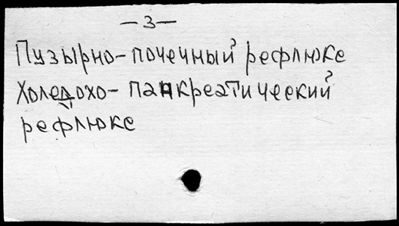 —3—
Пузырно-почечный рефлюкс
Холедохо-панкреатический
рефлюкс